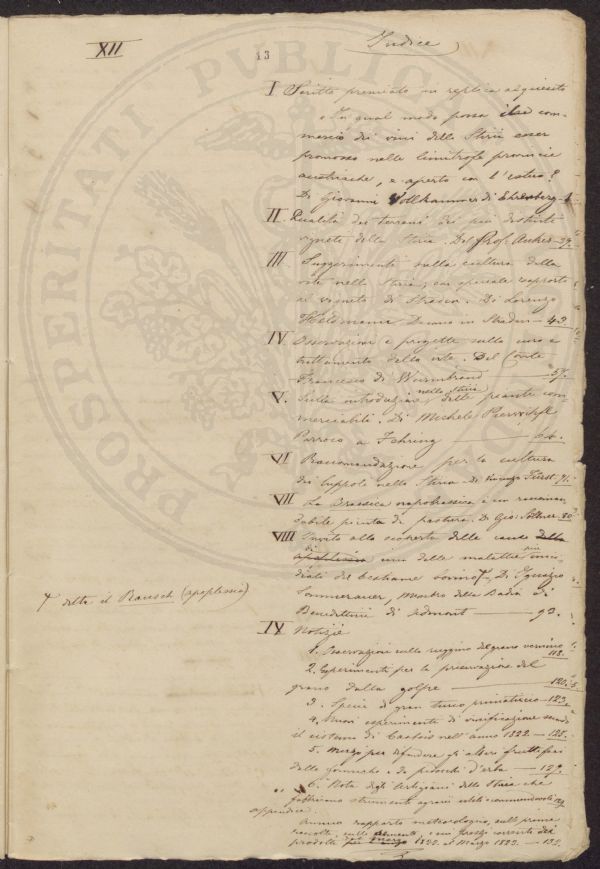 XII
13
Indice
I Scritto premiato in replica al quesito
"In qual modo possa il com-
mercio dei vini della Stiria esser
promosso nelle limitrofe provincie
austriache, e aperto con l'estero?
Di Giovanni Vollkammer di Ehrenberg - 1.
II. Qualità dei terreni dei più distinti
vigneti della Stiria. Del Prof. Anker - 39.
III Suggerimenti sulla cultura della
vite nella Stiria, con speciale rapporto
al vigneto di Di Lorenzo
in Stradin - 43.
IV. Osservazioni e progetti sulla
trattamento della vite. Del Conte
Francesco di Wurmbrand 57.
V. Sulla introduzione nella Stiria delle piante com-
merciabili. Di Michele
Parroco a Fehring 64.
VI Raccomandazione per la cultura
dei luppoli nella Stiria. Di Vincenzo Fürst - 71.
VII La Brassica napobrassica è un raccoman-
dabile pianta di pastura. Di Gio: 80
VIII Invito alla scoperta delle cause della
di una delle malattie più
del bestiame bovino. Di Ignazio
Sommerauer, Membro della Badia di
Benedettini di Admont 92.
detta il Rausch (apoplessia)
IX Notizie
1. Osservazioni sulla ruggine del grano vernino 118.
2. Esperimenti per la preservazione del
grano dalla golpe 120.
3. Specie di gran turco primaticcio - 123.
4. Nuovi esperimenti di vinificazione secondo
il sistema di nell'anno 1822. - 125.
5. Mezzo per difendere gli alberi fruttiferi
dalle formiche, da pidocchi d'erba - 127.
6. Nota degli Artigiani della Stiria che
fabbricano strumenti agrarii utili e commendevoli 129.
appendice.
Annuo rapporto meteorologico, sulle prime
raccolte, sulle e sui prezzi correnti dei
prodotti 1822. al Marzo 1823. - 133.
PROSPERITATI PUBLICAE